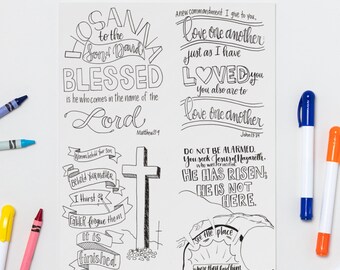 HOSANNA
to the
Son of David
BLESSED
is he who comes in the name of the
Lord
Matthew 21:9
A new commandment I give to you,
love one another
just as I have
LOVED you
You also are to
love one another
John 13:34
Behold your mother
I thirst
Father forgive them
It is
finished
DO NOT BE ALARMED.
You seek Jesus of Nazareth,
who was crucified.
HE HAS RISEN;
HE IS NOT
HERE.
See the place
where they laid him